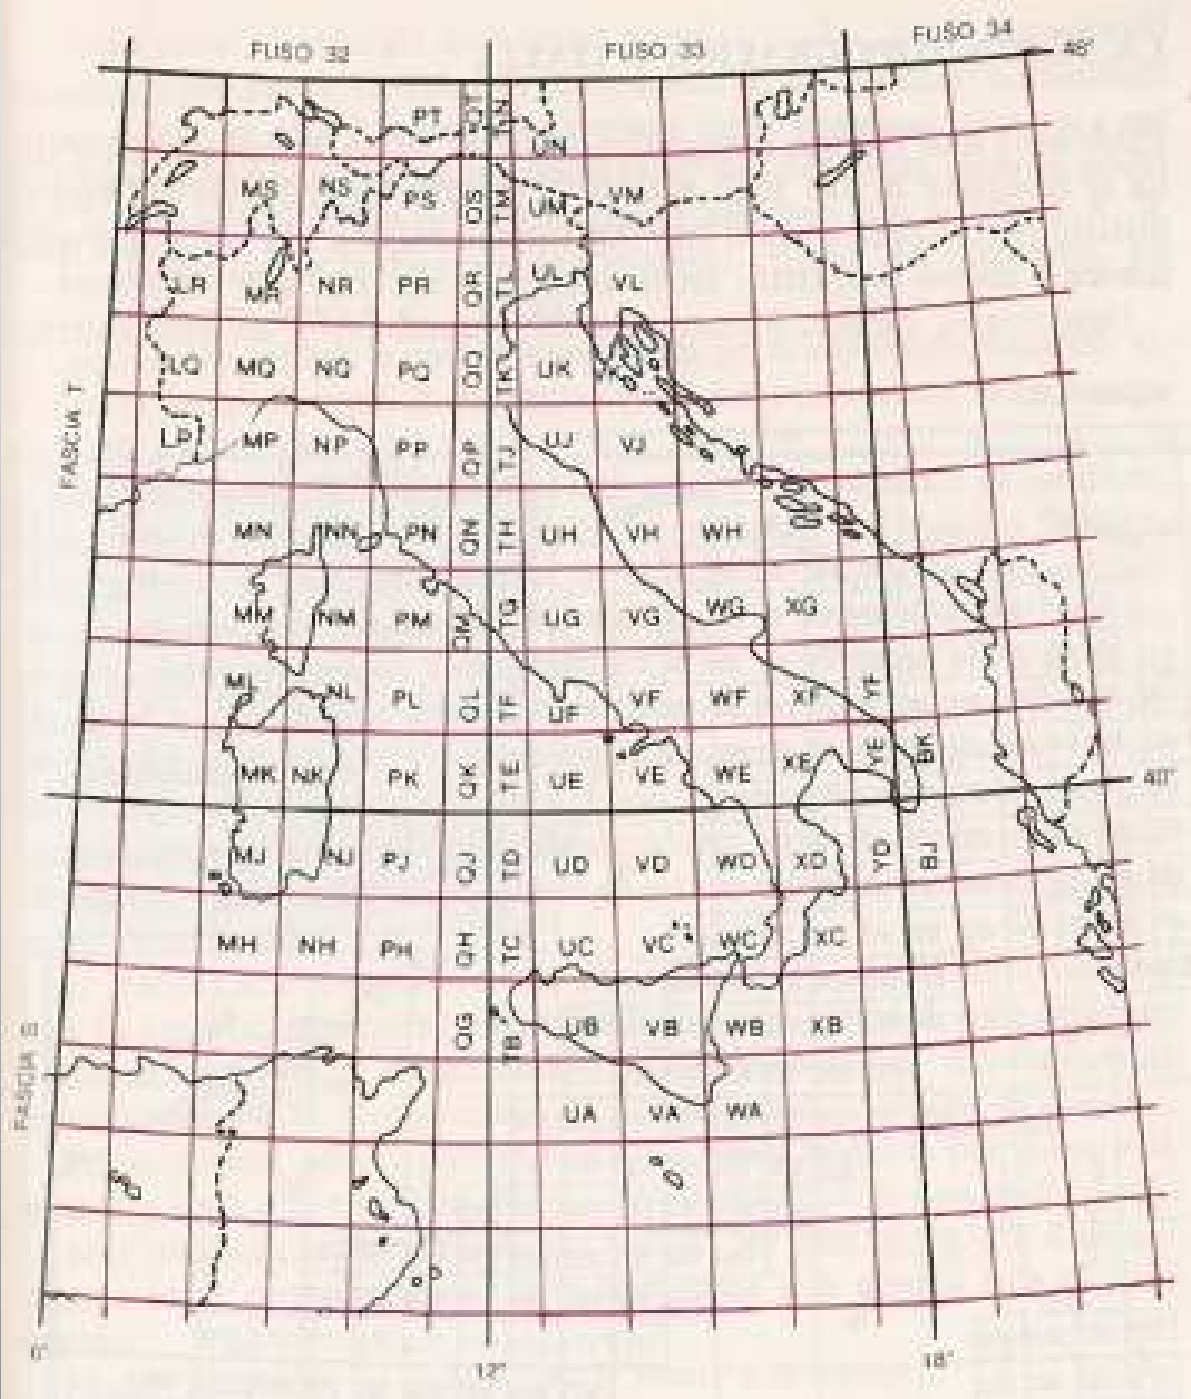 FUSO 32 FUSO 33 FUSO 34
48°
PT QT TN
UN
MS NS PS QS TM UM VM
LR MR NR PR QR TL UL VL
LQ MQ NQ PQ QQ TK UK
FASCIA T
LP MP NP PP QP TJ UJ VJ
MN NN PN QN TH UH VH WH
MM NM PM QM TG UG VG WG XG
ML NL PL QL TF UF VF WF XF YF
MK NK PK QK TE UE VE WE XE YE BK
40°
MJ NJ PJ QJ TD UD VD WD XD YD BJ
MH NH PH QH TC UC VC WC XC
QG TB UB VB WB XB
FASCIA S
UA VA WA
6° 12° 18°